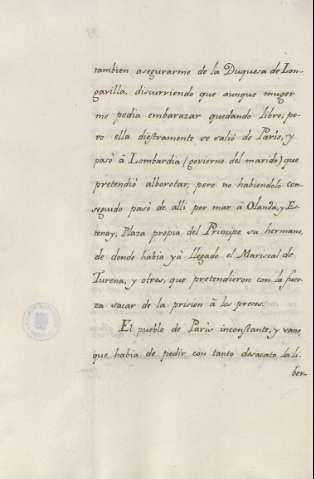 tambien asegurarme de la Duquesa de Lon-
gavilla, discurriendo que aunque muger
me podia embarazar quedando libre, pe-
ro ella diestramente se valió de París, y
pasò à Lombardia (govierno del marido) que
pretendiò alborotar, pero no habiendolo con-
seguido pasò de alli por mar à Olanda, y Es-
tenay, Plaza propia del Principe su hermano,
de donde habia yà llegado el Mariscal de
Turena, y otros, que pretendieron con la fuer-
za sacar de la prision à los presos.
El pueblo de Paris inconstante, y vano
que habia de pedir con tanto desacato la li-
ber-